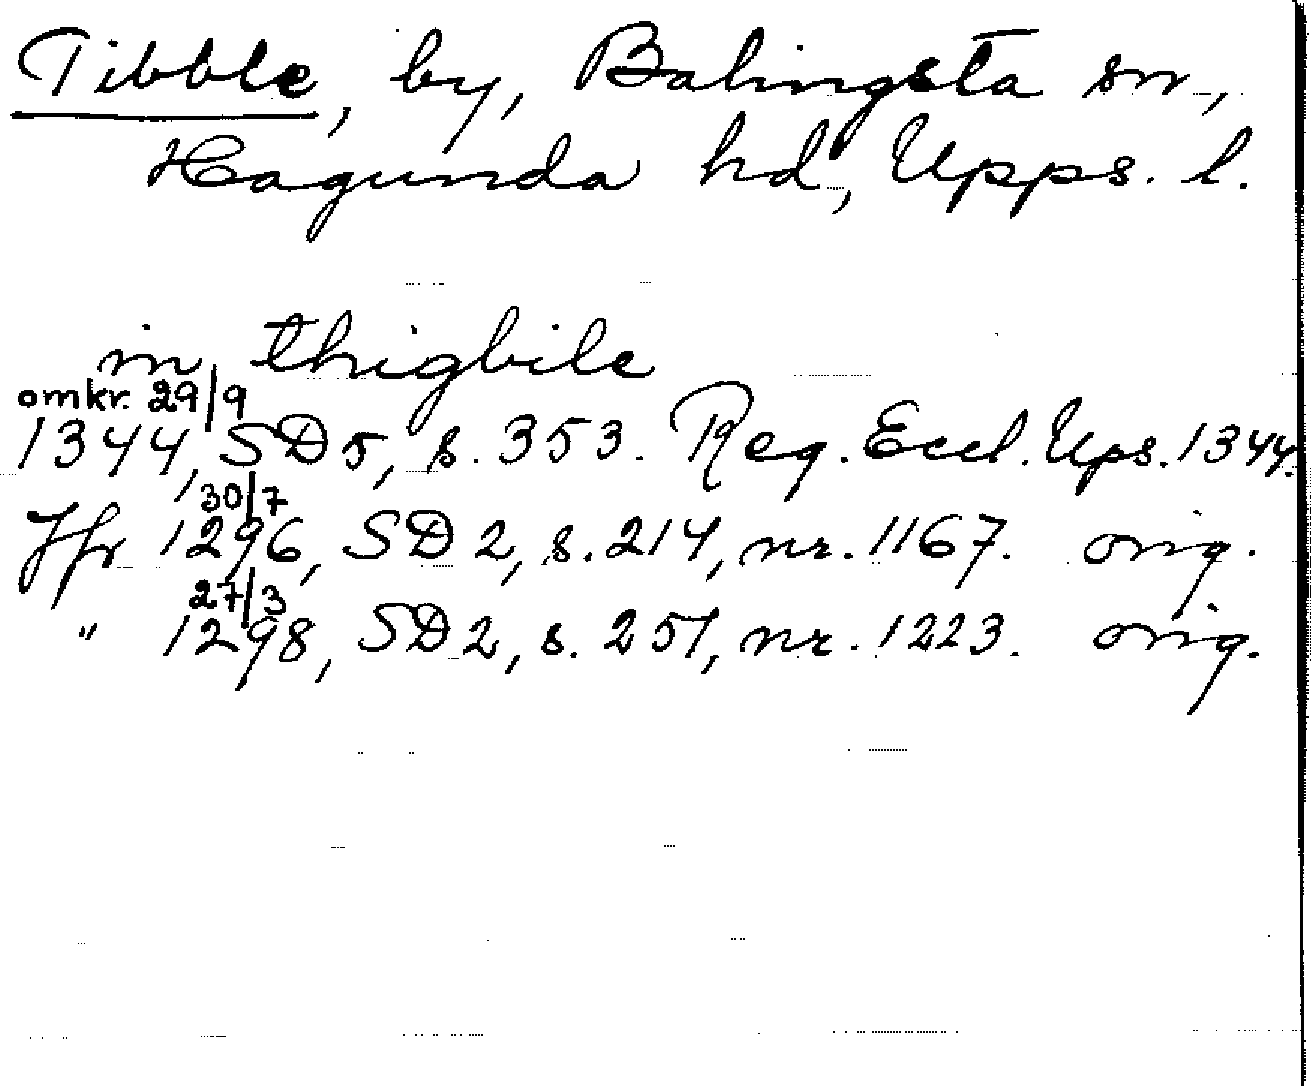 Tibble, by, Balingsta sn,
Hagunda hd, Upps. l.
in thigbile
omkr. 29/9
1344, SD 5, s. 353. Reg. Eccl. Ups. 1344.
30/7
Jfr 1296, SD 2, s. 214, nr. 1167. orig.
27/3
" 1298, SD 2, s. 251, nr. 1223. orig.